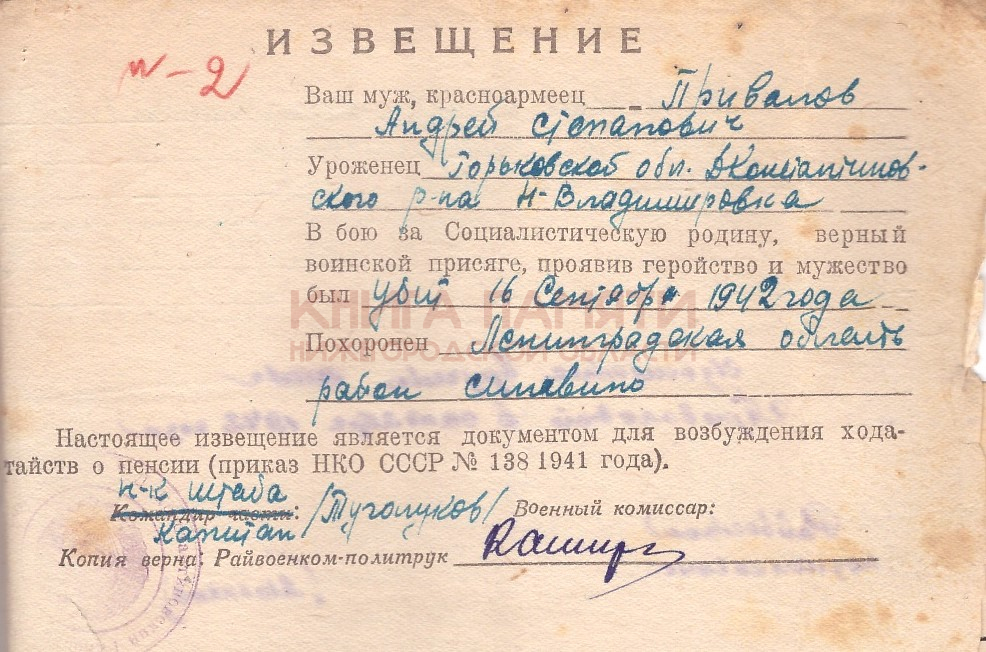 ИЗВЕЩЕНИЕ
N-2
Ваш муж, красноармеец Привалов
Андрей Степанович
Уроженец Горьковской обл. ДКонстантинов-
ского р-на Н-Владимировка
В бою за Социалистическую родину, верный
воинской присяге, проявив геройство и мужество
был убит 16 Сентября 1942 года
КНИГА ПАМЯТИ
НИЖЕГОРОДСКОЙ ОБЛАСТИ
Похоронен Ленинградская область
район Синявино
Настоящее извещение является документом для возбуждения хода-
тайств о пенсии (приказ НКО СССР № 138 1941 года).
Н-к штаба
Командир части: /Туголуков/ Военный комиссар:
Капитан
Копия верна: Райвоенком-политрук